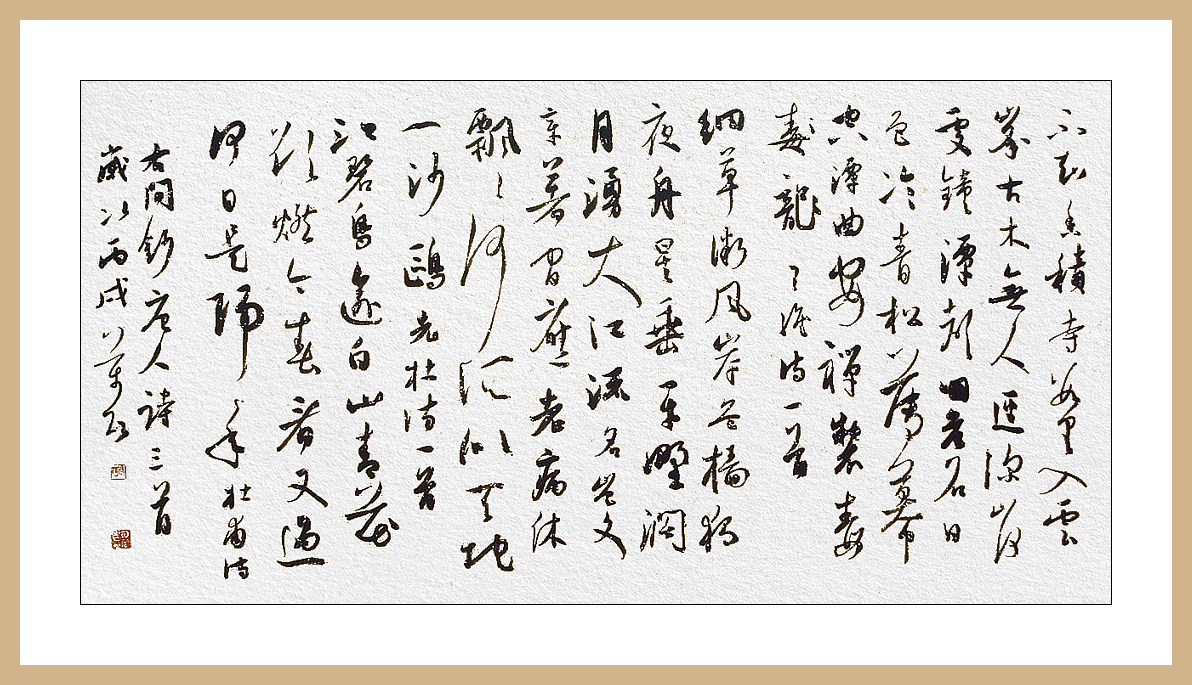 不知香積寺數里入雲
峯古木無人逕深山何
處鐘潭聲咽危石日
色冷青松薄暮
空潭曲安禪製毒
毒龍 王維詩一首
細草微風岸危檣獨
夜舟星垂平野闊
月湧大江流名豈文
章著官應老病休
飄飄何所似天地
一沙鷗 老杜詩一首
江碧鳥逾白山青花
欲燃今春看又過
何日是歸年 杜甫詩
右間鈔唐人詩三首
歲次丙戌